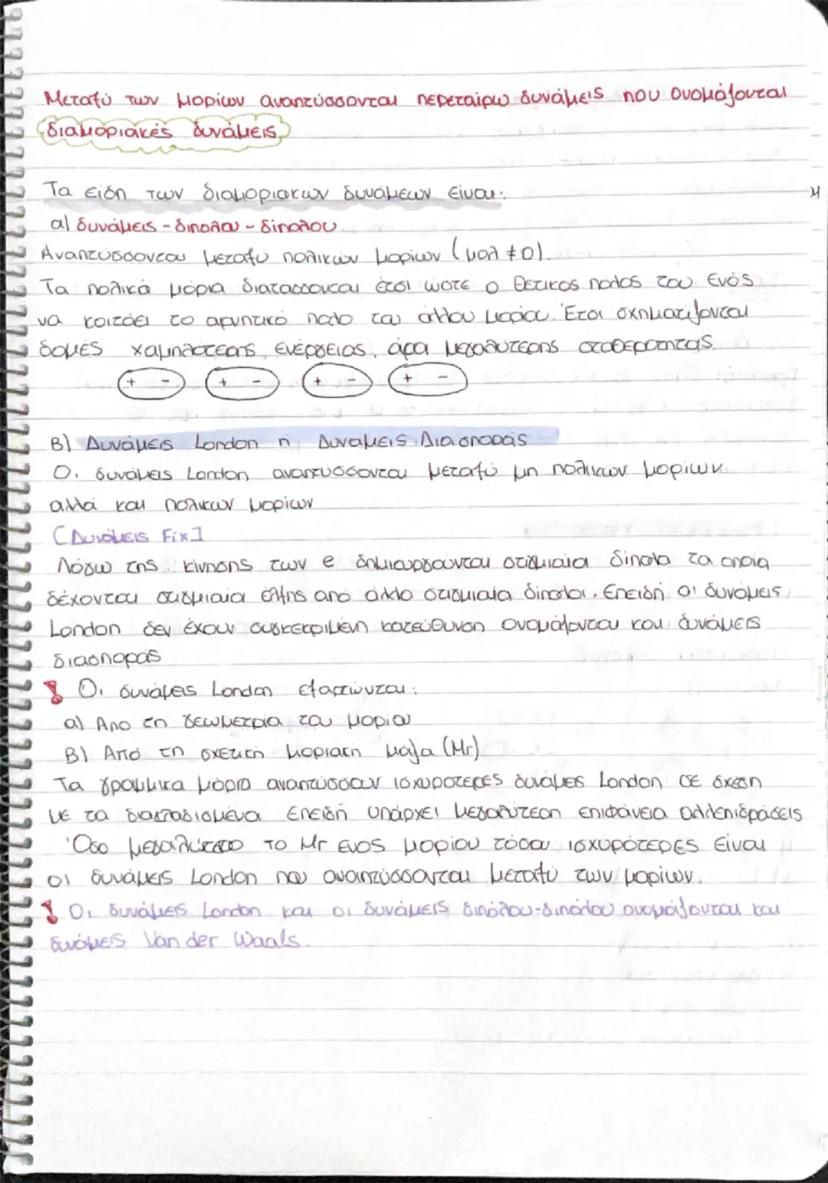 Μεταξύ των μορίων αναπτύσσονται περεταίρω δυνάμεις που ονομάζονται
διαμοριακές δυνάμεις
Τα είδη των διαμοριακων δυνάμεων είναι:
α) δυνάμεις - διπολου - δίπολου
Αναπτύσσονται μεταξύ πολικών μορίων (μολ ≠ 0).
Τα πολικά μόρια διατάσσονται έτσι ώστε ο θετικος πολος του ενός
να κοιτάει το αρνητικό πολο του άλλου μορίου. Έτσι σχηματίζονται
δομές χαμηλότερης ενέργειας, άρα μεγαλύτερης σταθερότητας.
+ - + - + - + -
Β) Δυνάμεις London ή Δυναμεις Διασποράς
Οι δυνάμεις London αναπτυσσονται μεταξύ μη πολικων μορίων
αλλά και πολικων μορίων
[Δυνάμεις Fix]
Λόγω της κίνησης των e δημιουργούνται στιγμιαία δίπολα τα οποία
δέχονται στιγμιαία έλξης απο άλλο στιγμιαία δίπολοι. Επειδή οι δυνάμεις
London δεν έχουν συγκεκριμένη κατεύθυνση ονομάζονται και δυνάμεις
διασποράς
Οι δυνάμεις London εξαρτώνται:
α) Απο τη γεωμετρία του μορίου
Β) Από τη σχετική μοριακη μαζα (Mr)
Τα γραμμικα μόρια αναπτύσσουν ισχυρότερες δυνάμεις London σε σχέση
με τα διακλαδισμένα επειδή υπάρχει μεγαλύτερη επιφάνεια αλληλεπιδράσεις
Όσο μεγαλύτερο το Mr ενος μορίου τόσο ισχυρότερες είναι
οι δυνάμεις London που αναπτύσσονται μεταξύ των μορίων.
Οι δυνάμεις London και οι δυνάμεις διπόλου-διπόλου ονομάζονται και
δυνάμεις Van der Waals.